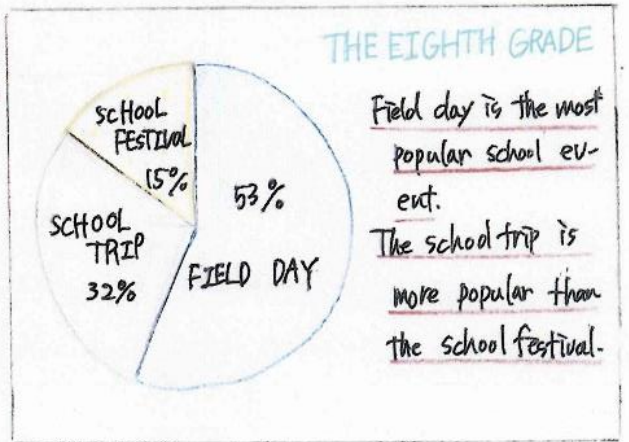 THE EIGHTH GRADE
SCHOOL
FESTIVAL
15%
53%
FIELD DAY
SCHOOL
TRIP
32%
Field day is the most
popular school ev-
ent.
The school trip is
more popular than
the school festival.